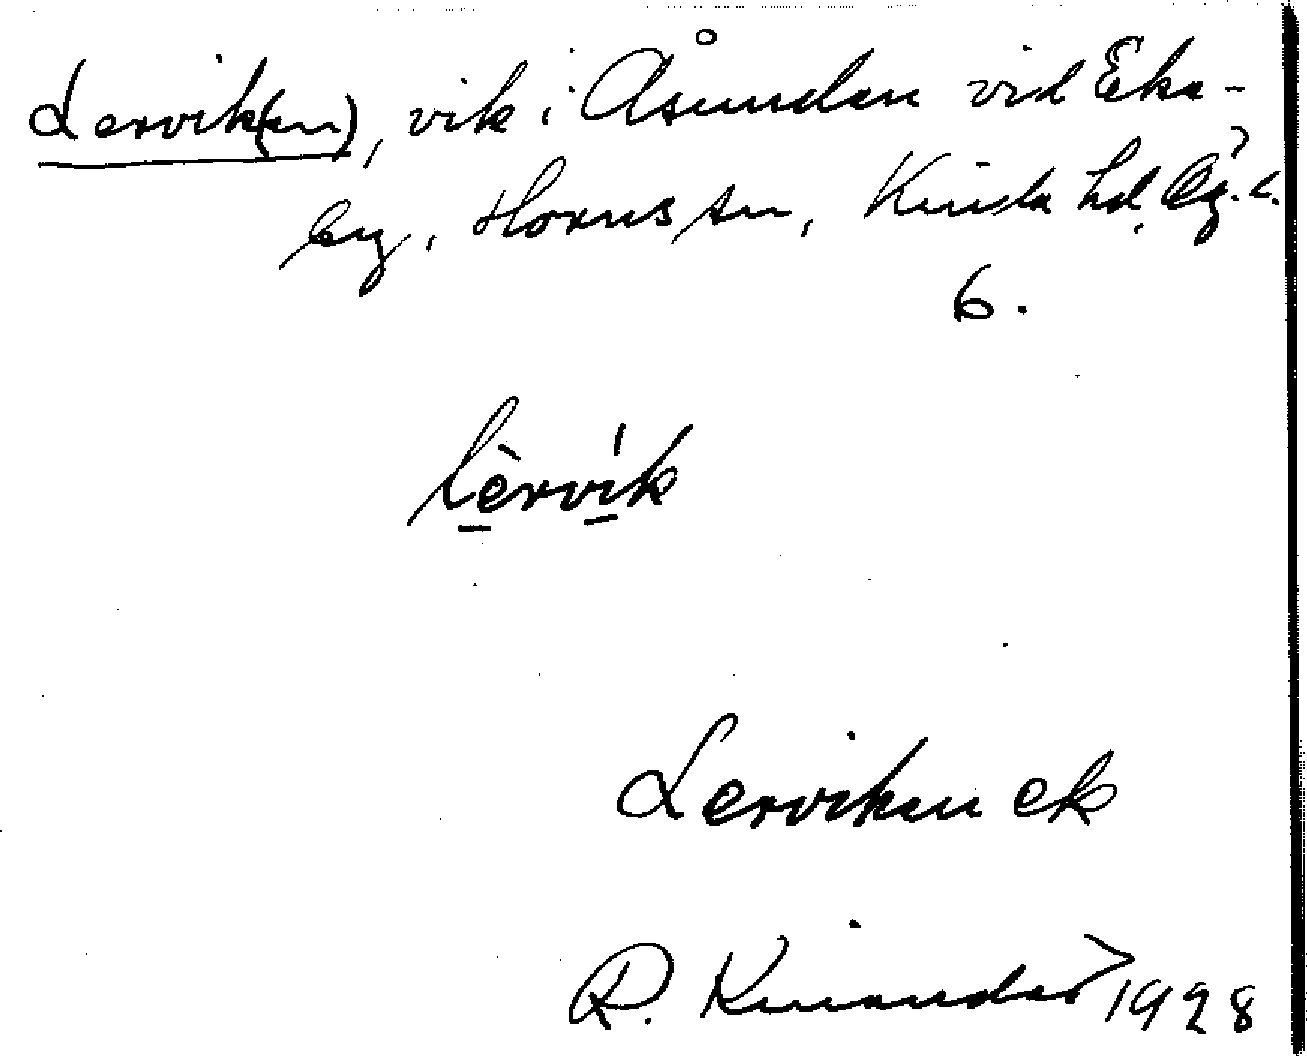 Lervik(en), vik i Åsunden vid Eka-
berg, Horns sn, Kinda hd. Ög. l.
6.
lèrvík
Lerviken ek
R. Kinander 1928